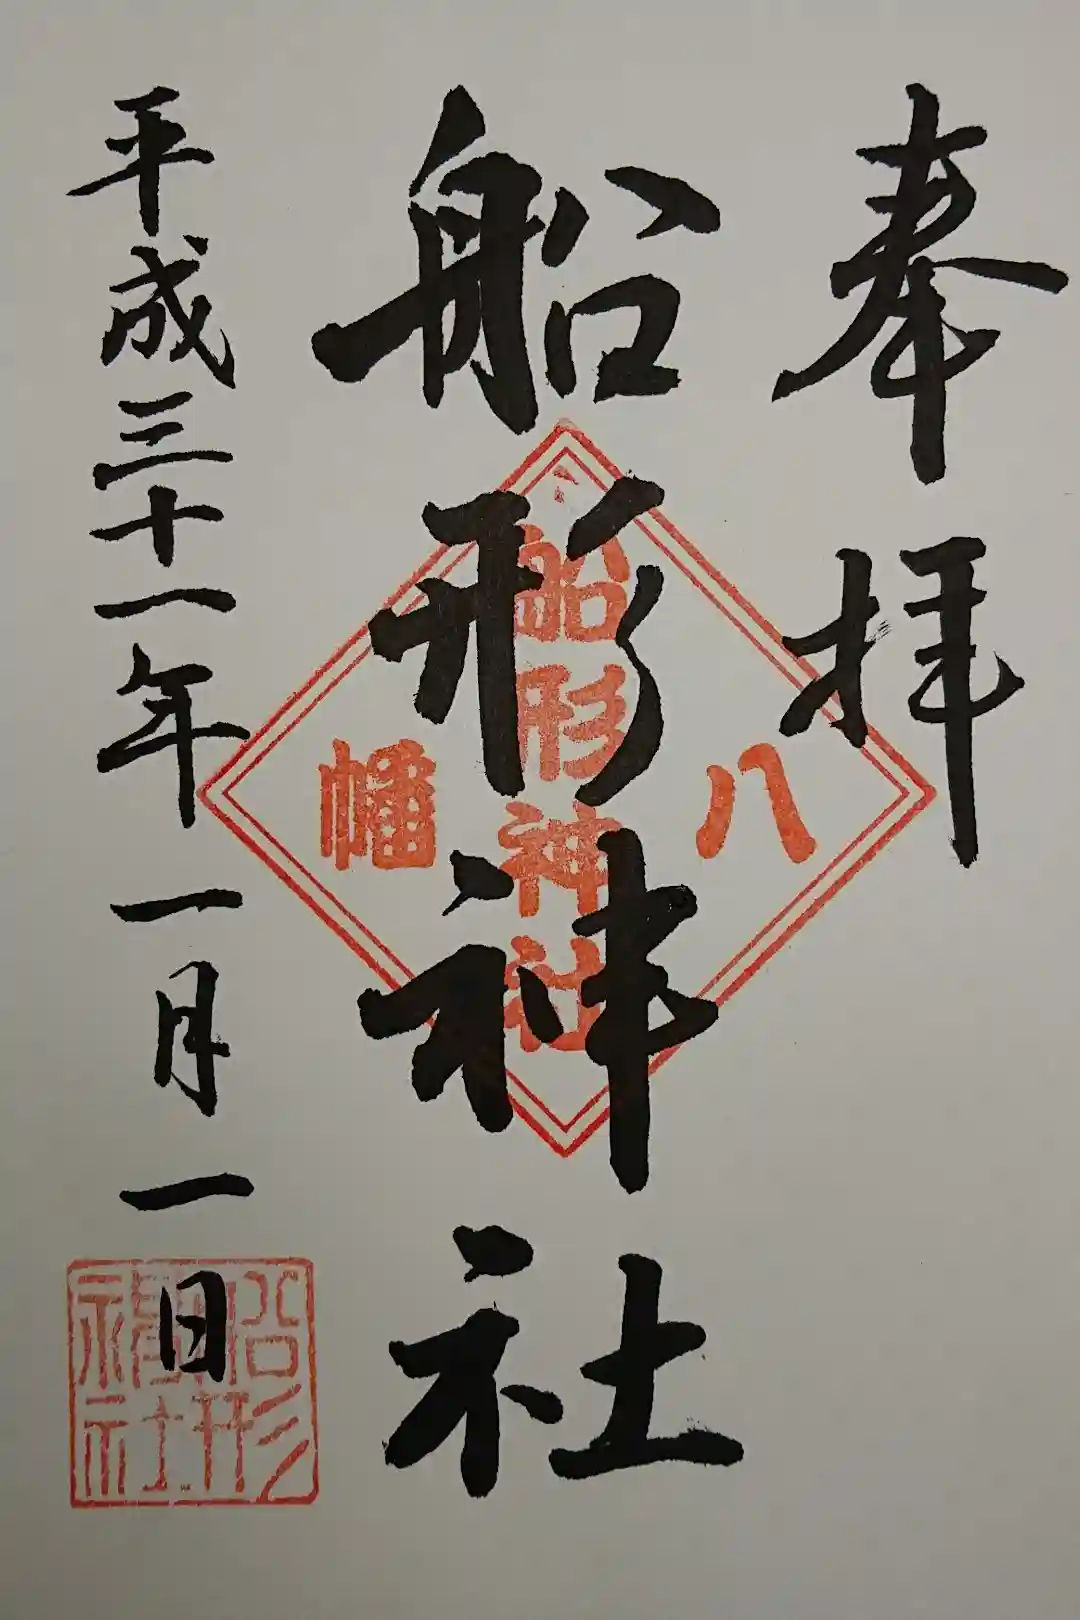 奉拝
八
船形神社
船形神社
幡
平成三十一年一月一日
船形
神社